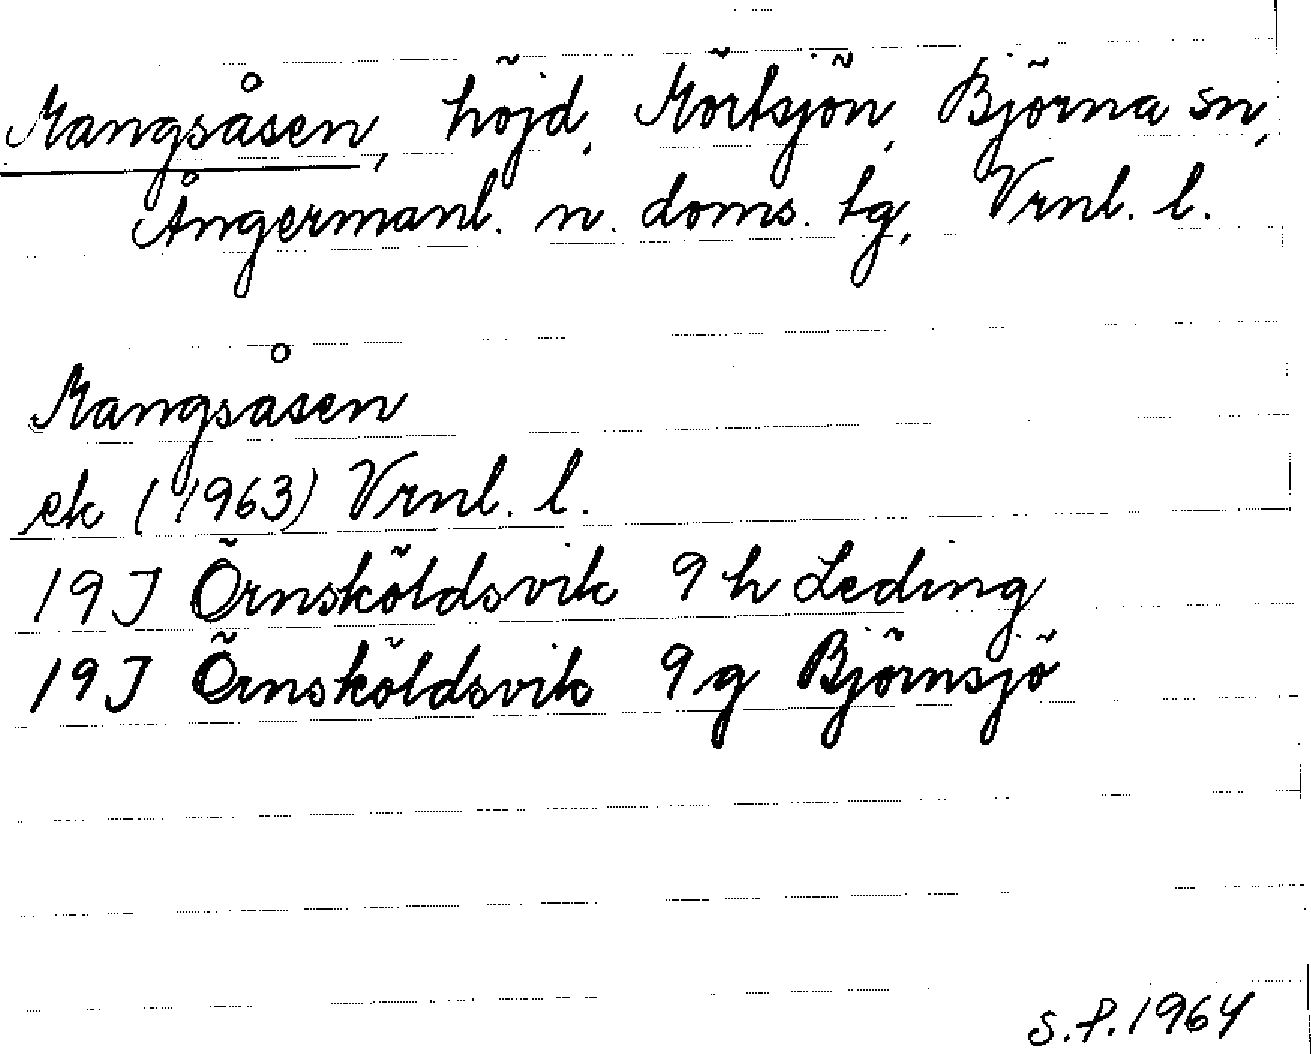 Mangsåsen, höjd, Mörtsjön, Björna sn,
Ångermanl. n. doms. tg, Vrnl. l.
Mangsåsen
ek (1963) Vrnl. l.
19J Örnsköldsvik 9h Leding
19J Örnsköldsvik 9g Björnsjö
S.P. 1964